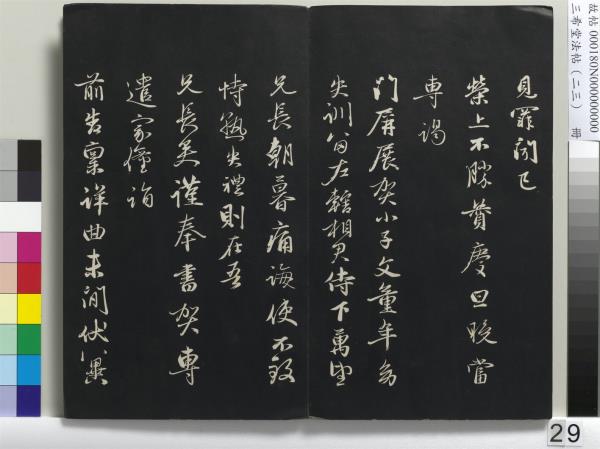 見罪聞已
榮上不勝贊慶旦晚當
專謁
門屏展賀小子文童年多
失訓為左轄相君侍下萬望
兄長朝暮痛誨使不致
恃恩失禮則在吾
兄長爾謹奉書賀專
遣家僮詣
前告稟詳曲未間伏冀
故帖 000180N000000000
三希堂法帖(二三) 冊
29